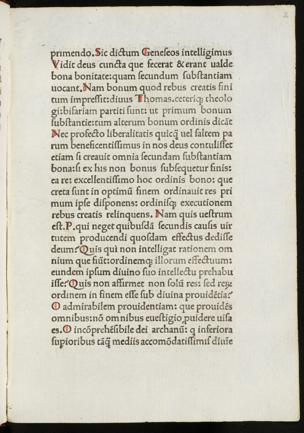 primendo. Sic dictum Geneseos intelligimus
Vidit deus cuncta que fecerat & erant ualde
bona bonitate: quam secundum substantiam
uocant. Nam bonum quod rebus creatis fini
tum impressit: diuus Thomas. ceteriq; theolo
gi: bifariam partiti sunt: ut primum bonum
substantie: tum alterum bonum ordinis dicāt
Nec profecto liberalitatis quicq̄ uel saltem pa
rum beneficentissimus in nos deus contulisset
etiam si creauit omnia secundum substantiam
bona: si ex his non bonus subsequetur finis:
ea re: excellentissimo hoc ordinis bono: que
creta sunt in optimū finem ordinauit res pri
mum ipse disponens: ordinisq; executionem
rebus creatis relinquens. Nam quis uestrum
est. P. qui neget quibusdā secundis causis uir
tutem producendi quosdam effectus dedisse
deum? Quis qui non intelligat rationem om
nium que fiūt: ordinemq; illorum effectuum:
eundem ipsum diuino suo intellectu prehabu
isse? Quis non affirmet non solū res: sed reꝝ
ordinem in finem esse sub diuina prouidētia?
O admirabilem prouidentiam: que prouidēs
omnibus: nō omnibus euestigio ꝓuidere uisa
es. O incōprehēsibile dei archanū: q inferiora
supioribus tāq̄ mediis accomōdatissimis diuīe